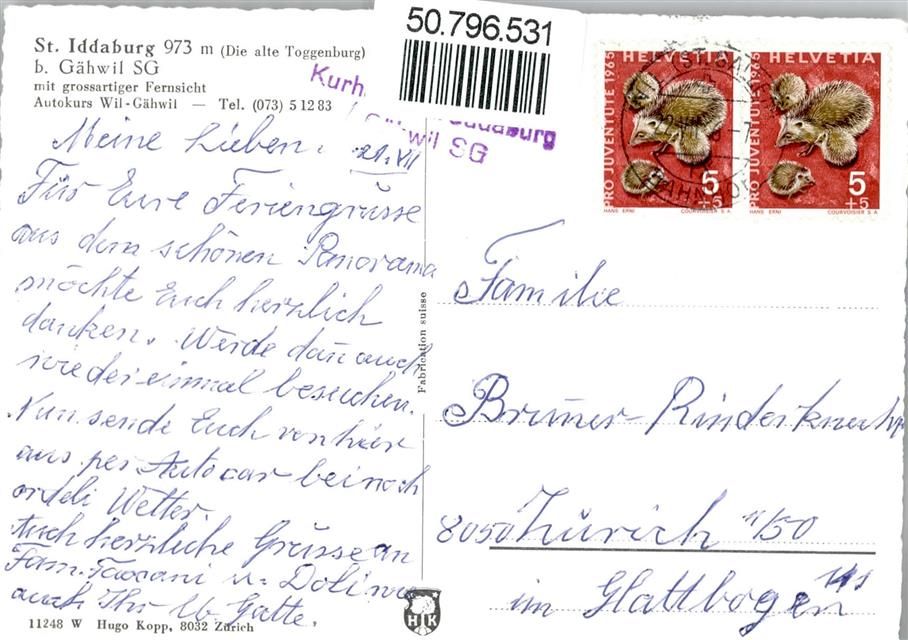 St. Iddaburg 973 m (Die alte Toggenburg)
b. Gähwil SG
mit grossartiger Fernsicht
Autokurs Wil-Gähwil — Tel. (073) 5 12 83
50.796.531
Kurh
Iddaburg
wil SG
Meine Lieben, 21. VII
Für Eure Feriengrüsse
aus dem schönen Panorama
möchte Euch herzlich
danken. Werde dan auch
wiedereinmal besuchen.
Nun sende Euch von hier
aus per Autocar bei noch
ordeli Wetter.
Auch herzliche Grüsse an
Fam. u.
auch Ihr lb. Gatte.
11248 W Hugo Kopp, 8032 Zürich
Fabrication suisse
HK
HELVETIA
PRO JUVENTUTE 1965
5
+5
HANS ERNI COURVOISIER S.A.
HELVETIA
PRO JUVENTUTE 1965
5
+5
HANS ERNI COURVOISIER S.A.
Familie
Brunner-Rinderknecht
8050 Zürich 11/50
im Glattbogen